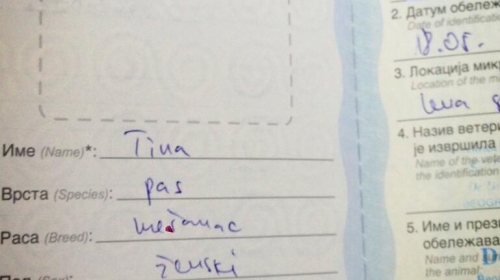 Име (Name)*: Tina
Врста (Species): pas
Раса (Breed): mešanac
ženski
2. Датум обележ
Date of identificati
18.05.
3. Локација мик
Location of the m
leva
4. Назив ветери
је извршила
Name of the vete
the identification
5. Име и презі
обележава
Name and
the animal